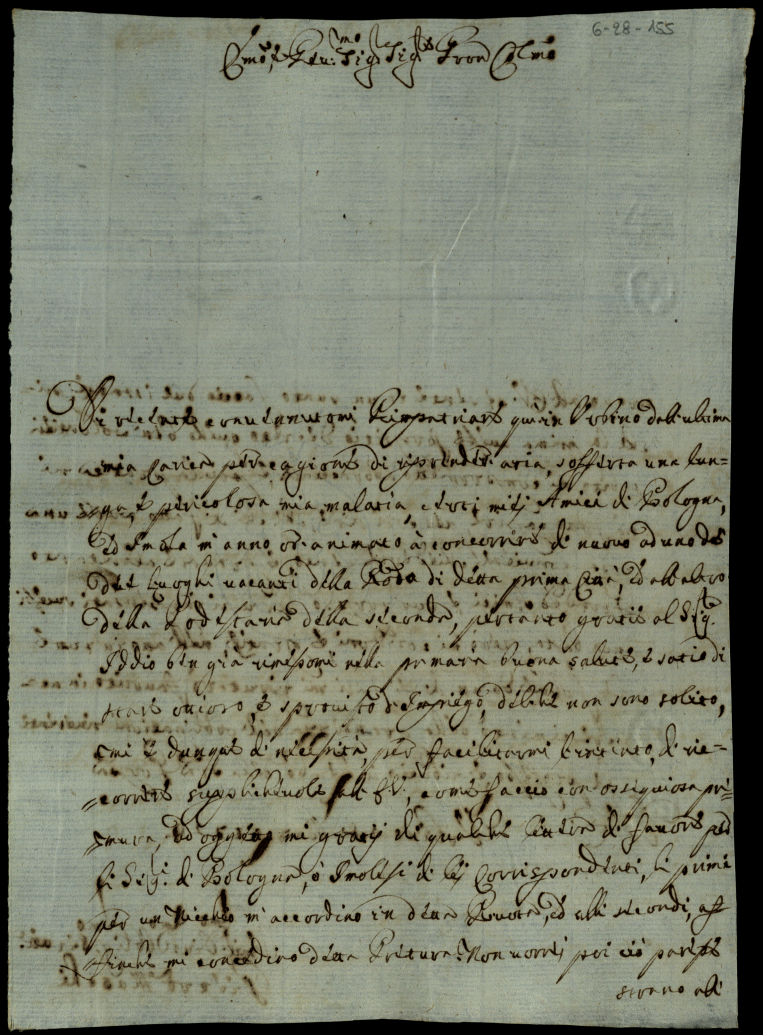 6-28-155
Emo, e Rev:mo Sig. Sig. Pron Colmo
Di recente convenutomi Rimpatriare quà in Urbino dall'ultima
mia Carica per cagione di riprender aria, sofferta una lun=
ga, e pericolosa mia malatia, certi miei Amici di Bologna,
ed Imola m'anno or animato à concorrere di nuovo ad uno de
due luoghi vacanti della Rota di detta prima Città, ed all'altro
della Podestaria della seconda, pertanto grazie al Sig.
Iddio ben già rimessomi nella primiera buona salute, e satio di
stare ozioso, e sprovisto d'Impiego, del che non sono solito,
mi è dunque di necessità, per facilitarmi l'intento, di ric=
=correre supplichevole all' E V, come faccio con ossequiosa pre=
=mura, ad oggetto mi grazij di qualche lettera di favore per
li Sig.i di Bologna, ò Imolesi di lei Corrispondenti, li primi
per un Nicchio m'accordino in detta Ruota, ed alli secondi, aff=
finche mi concedino detta Pretura. Non vorrei poi ciò paresse
strano all'